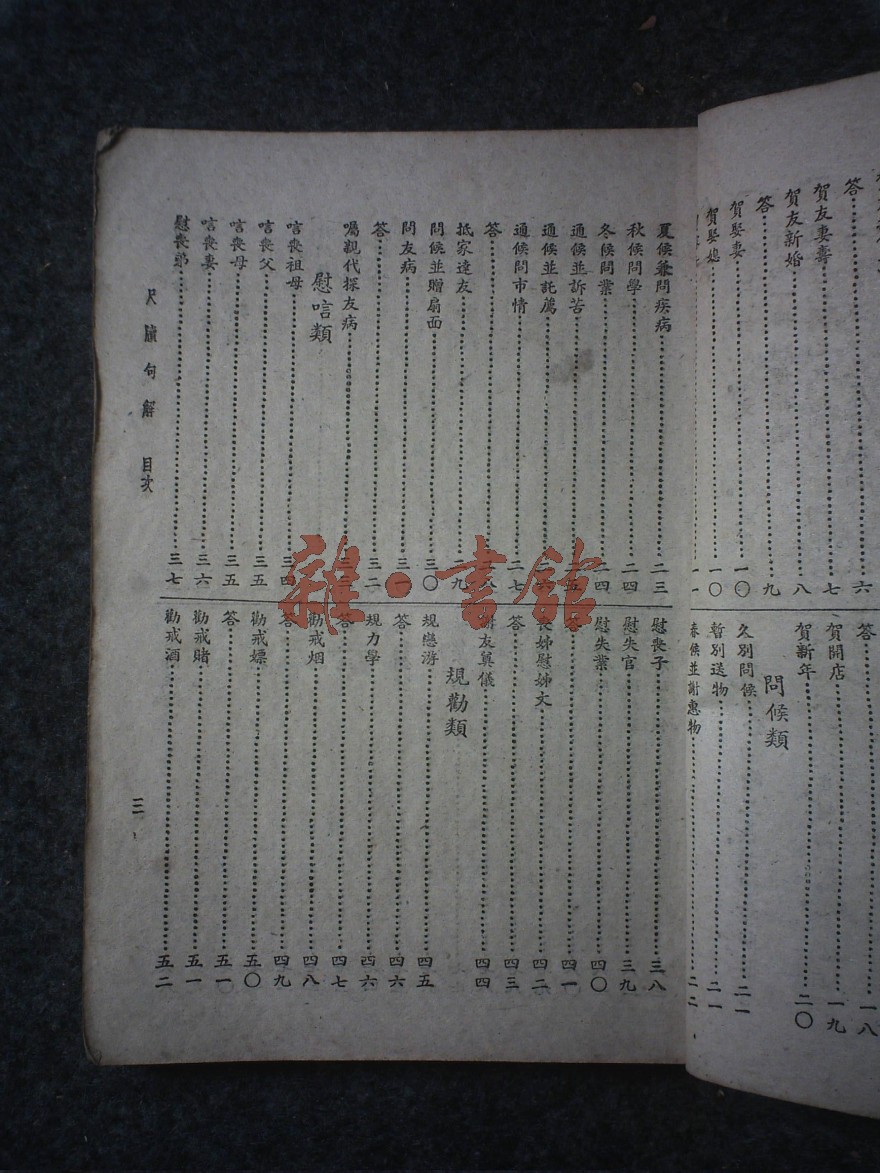 答……六
賀友妻壽……七
賀友新婚……八
答……九
賀娶妻……一〇
賀娶媳……一〇
一一
答……一八
賀開店……一九
賀新年……二〇
問候類
久別問候……二一
暫別送物……二一
春候並謝惠物……二二
夏候兼問疾病……二三
秋候問學……二四
冬候問業……二四
通候並訴苦……二五
通候並託薦……二六
通候問市情……二七
答……二八
抵家達友……二九
問候並贈扇面……三〇
問友病……三一
答……三二
囑親代探友病……三三
慰唁類
唁喪祖母……三四
唁喪父……三五
唁喪母……三五
唁喪妻……三六
慰喪弟……三七
慰喪子……三八
慰失官……三九
慰失業……四〇
答……四一
喪姊慰姊丈……四二
答……四三
謝友奠儀……四四
規勸類
規戀游……四五
答……四六
規力學……四六
答……四七
勸戒烟……四八
答……四九
勸戒嫖……五〇
答……五一
勸戒賭……五一
勸戒酒……五二
尺牘句解 目次
三
雜·書館